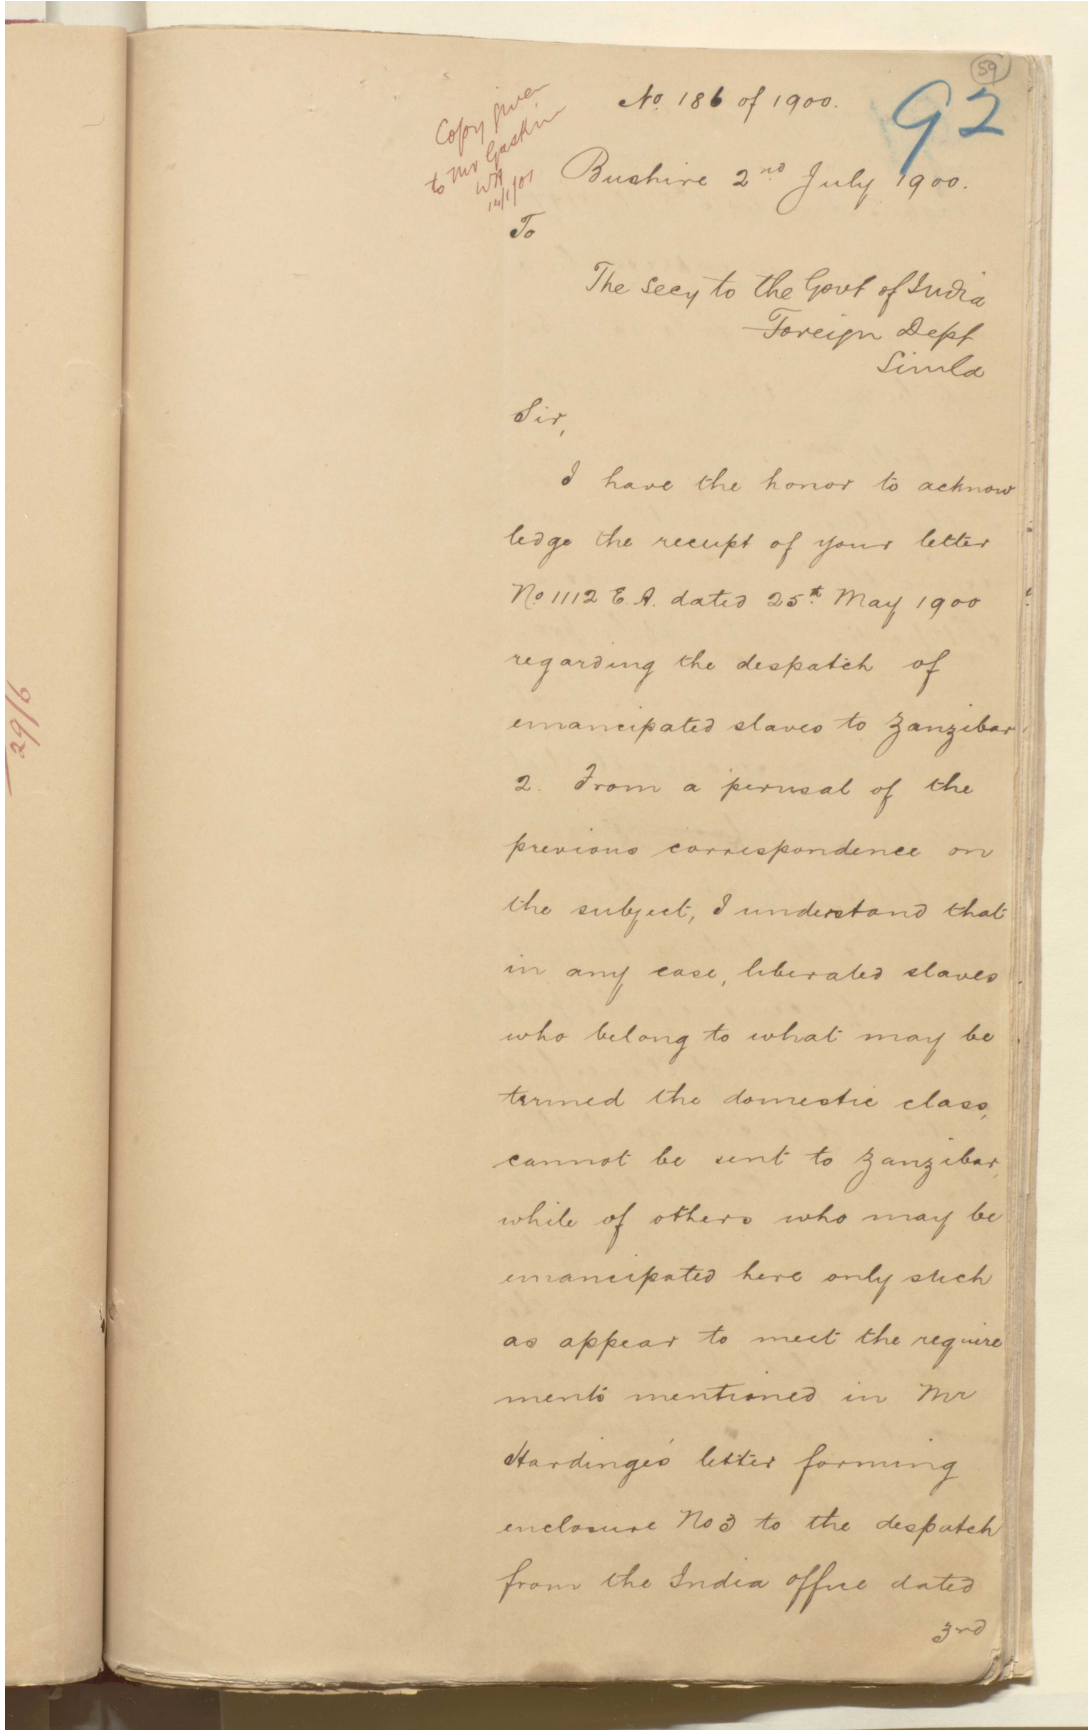 59
92
No. 186 of 1900.
Copy given
to Mr Gaskin
14/1/01
Bushire 2nd July 1900.
To
The Secy to the Govt of India
Foreign Dept
Simla
Sir,
I have the honor to acknow
ledge the receipt of your letter
No 1112 E.A. dated 25th May 1900
regarding the despatch of
emancipated slaves to Zanzibar
2. From a perusal of the
previous correspondence on
the subject, I understand that
in any case, liberated slaves
who belong to what may be
termed the domestic class,
cannot be sent to Zanzibar,
while of others who may be
emancipated here only such
as appear to meet the require
ments mentioned in Mr
Hardinge's letter forming
enclosure No 3 to the despatch
from the India office dated
3rd
29/6